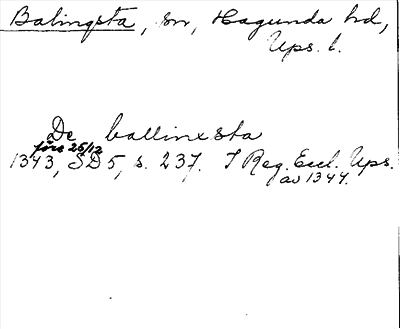 Balingsta, sn, Hagunda hd,
Ups. l.
De ballinxsta
före 25/12
1343, SD 5, s. 237. I Reg. Eccl. Ups.
av 1344.